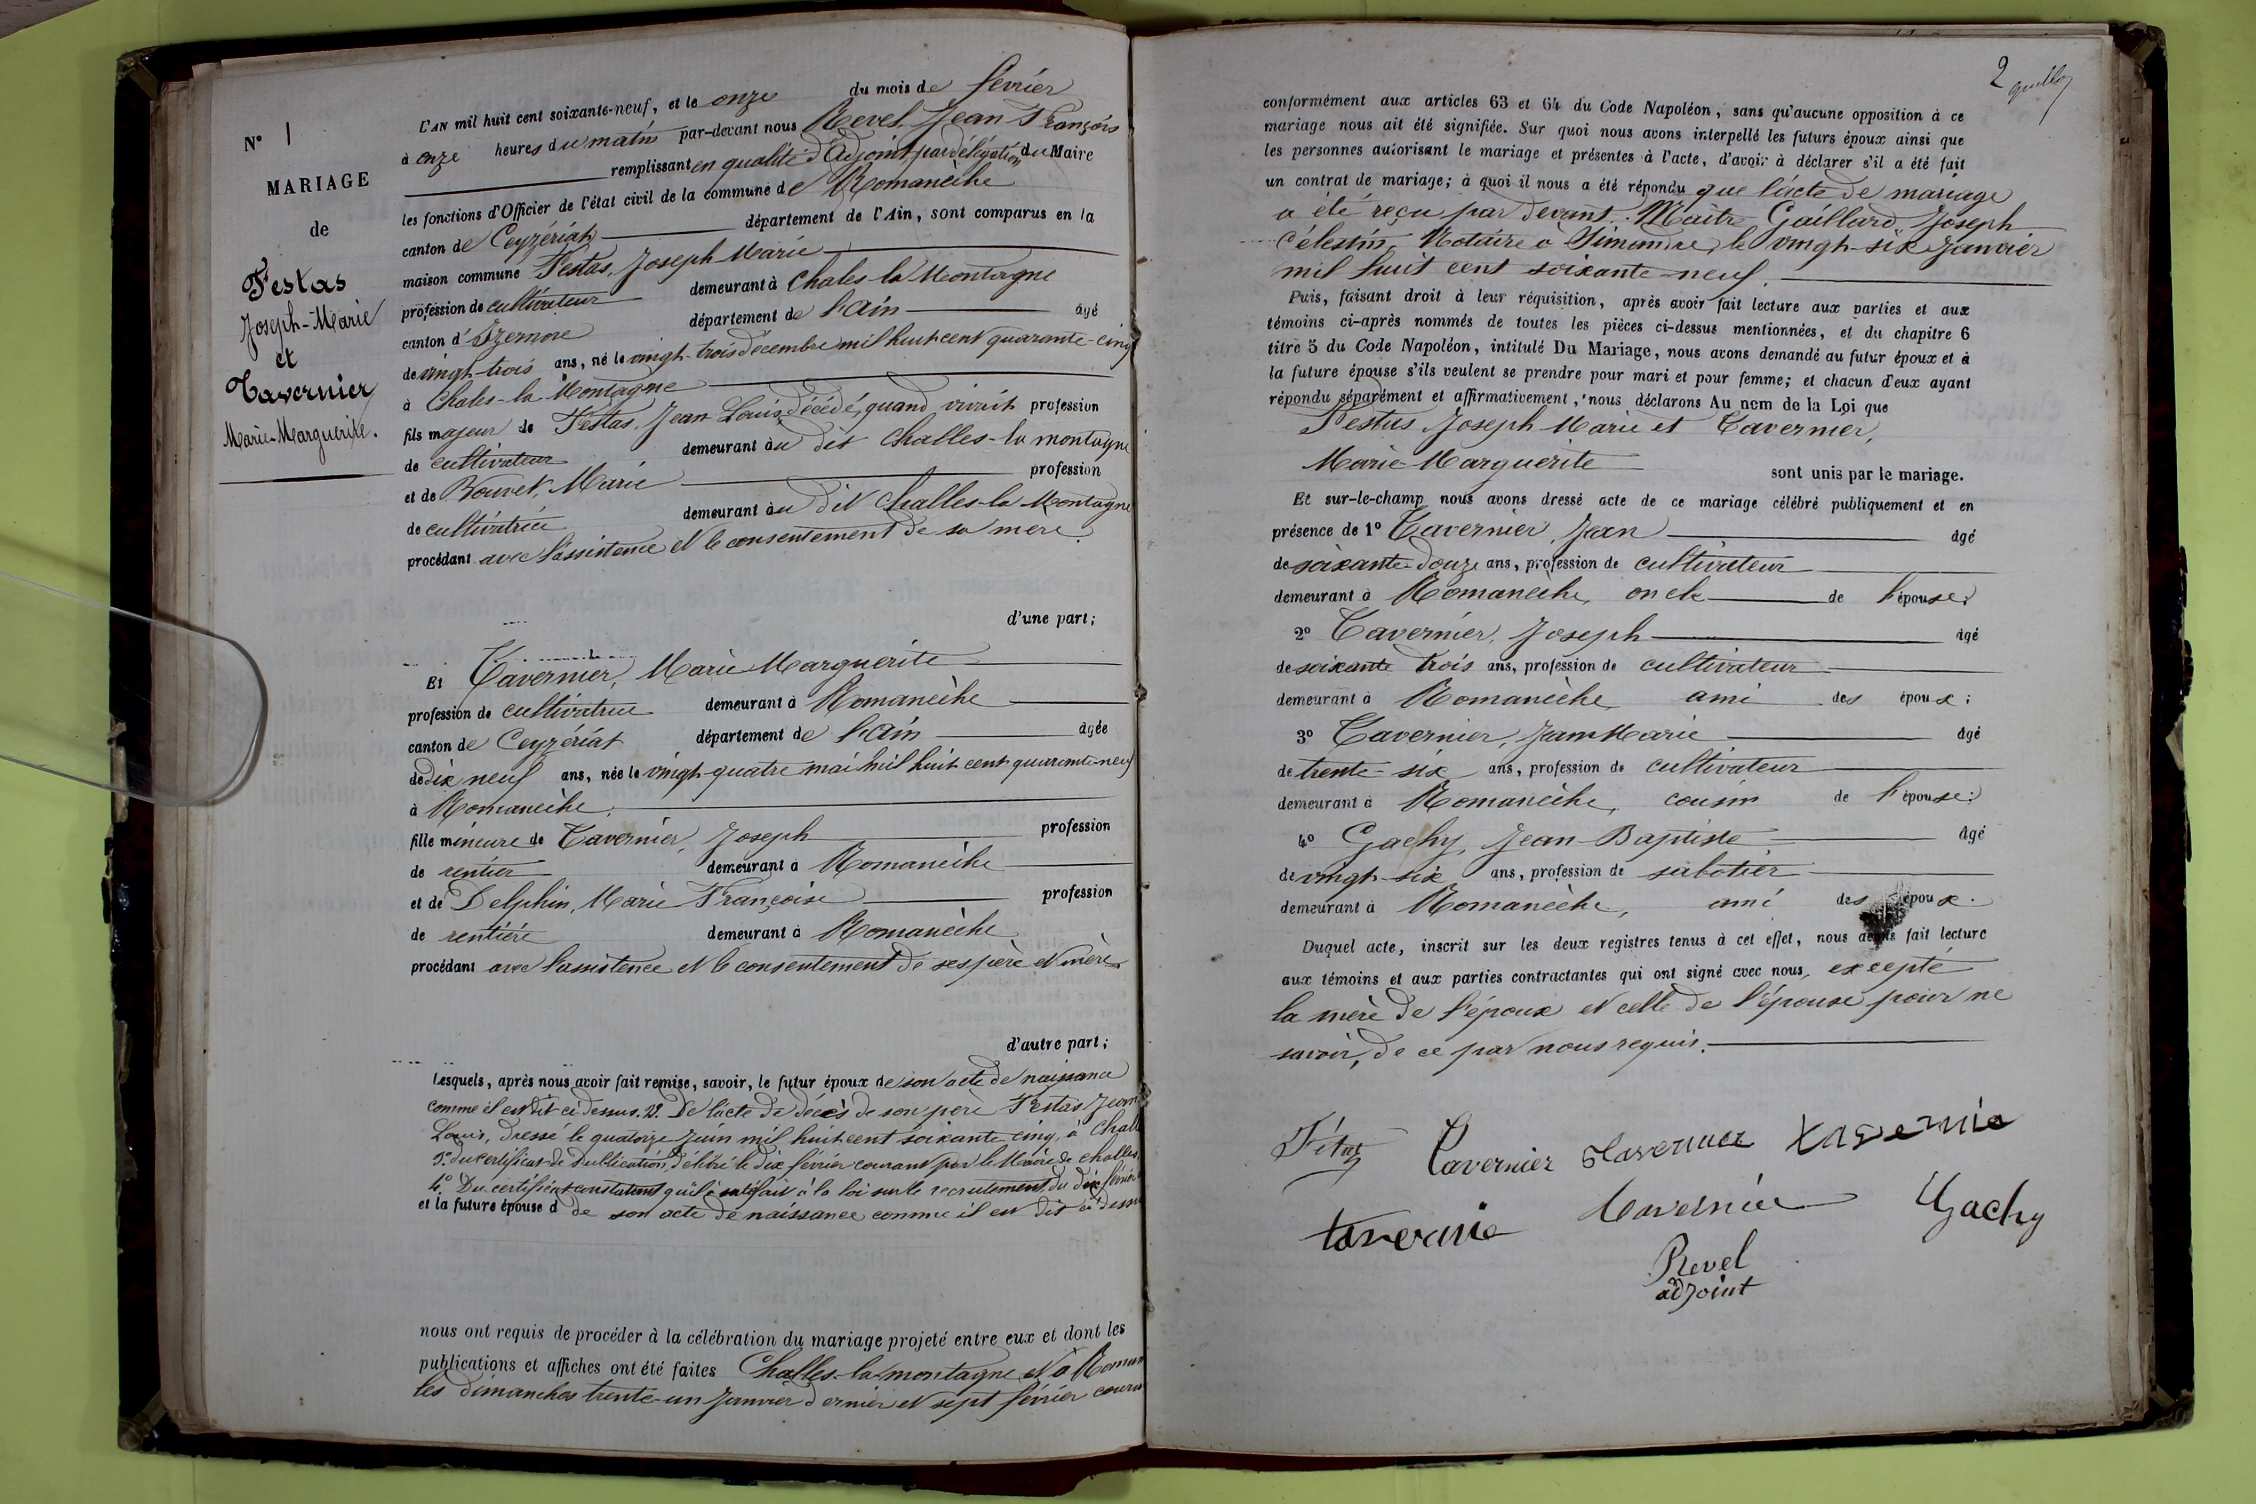 N° 1
MARIAGE
de
Festas
Joseph-Marie
et
Tavernier
Marie-Marguerite.
L'AN mil huit cent soixante-neuf, et le onze du mois de février
à onze heures du matin par-devant nous Revel Jean François
remplissant en qualité d'Adjoint par délégation du Maire
les fonctions d'Officier de l'état civil de la commune de Romanèche
canton de Ceyzériat département de l'Ain, sont comparus en la
maison commune Festas, Joseph Marie
profession de cultivateur demeurant à Chales-la Montagne
canton d'Izernore département de l'Ain âgé
de vingt-trois ans, né le vingt-trois décembre mil huit cent quarante-cinq
à Chales-la-Montagne
fils majeur de Festas, Jean Louis, décédé, quand vivait profession
de cultivateur demeurant au dit Challes-la montagne
et de Bouvet, Marie profession
de cultivatrice demeurant au dit Challes-la Montagne
procédant avec l'assistence et le consentement de sa mère
d'une part;
Et Tavernier, Marie Marguerite
profession de cultivatrice demeurant à Romanèche
canton de Ceyzériat département de l'Ain âgée
de dix neuf ans, née le vingt-quatre mai mil huit cent quarante-neuf
à Romanèche
fille mineure de Tavernier, Joseph profession
de rentier demeurant à Romanèche
et de Delphin, Marie Françoise profession
de rentière demeurant à Romanèche
procédant avec l'assistence et le consentement de ses père et mère
d'autre part;
Lesquels, après nous avoir fait remise, savoir, le futur époux de son acte de naissance
comme il est dit ci dessus. 2°. De l'acte de décès de son père Festas Jean
Louis, dressé le quatorze Juin mil huit cent soixante cinq, à Chall
3°. du certificat de Publication, délivré le dix février courant par le Maire de Challes
4°. Du certificat constatant qu'il a satisfait à la loi sur le recrutement du dix févrie
et la future épouse d de son acte de naissance comme il est dit ci dessu
nous ont requis de procéder à la célébration du mariage projeté entre eux et dont les
publications et affiches ont été faites Challes-la-montagne et à Roman
les dimanches trente-un Janvier dernier et sept février coura
2
conformément aux articles 63 et 64 du Code Napoléon, sans qu'aucune opposition à ce
mariage nous ait été signifiée. Sur quoi nous avons interpellé les futurs époux ainsi que
les personnes autorisant le mariage et présentes à l'acte, d'avoir à déclarer s'il a été fait
un contrat de mariage; à quoi il nous a été répondu que l'acte de mariage
a été reçu par devant Maître Gaillard Joseph
Célestin, Notaire à Simandre, le vingt-six Janvier
mil huit cent soixante-neuf.
Puis, faisant droit à leur réquisition, après avoir fait lecture aux parties et aux
témoins ci-après nommés de toutes les pièces ci-dessus mentionnées, et du chapitre 6
titre 5 du Code Napoléon, intitulé Du Mariage, nous avons demandé au futur époux et à
la future épouse s'ils veulent se prendre pour mari et pour femme; et chacun d'eux ayant
répondu séparément et affirmativement, nous déclarons Au nom de la Loi que
Festas Joseph Marie et Tavernier,
Marie-Marguerite sont unis par le mariage.
Et sur-le-champ nous avons dressé acte de ce mariage célébré publiquement et en
présence de 1° Tavernier, Jean âgé
de soixante-douze ans, profession de cultivateur
demeurant à Romanèche, oncle de l'épouse;
2° Tavernier, Joseph âgé
de soixante trois ans, profession de cultivateur
demeurant à Romanèche ami des époux;
3° Tavernier, Jean Marie âgé
de trente-six ans, profession de cultivateur
demeurant à Romanèche, cousin de l'épouse;
4° Gachy, Jean-Baptiste âgé
de vingt-six ans, profession de sabotier
demeurant à Romanèche, ami des époux.
Duquel acte, inscrit sur les deux registres tenus à cet effet, nous avons fait lecture
aux témoins et aux parties contractantes qui ont signé avec nous, excepté
la mère de l'époux et celle de l'épouse pour ne
savoir, de ce par nous requis.
Tavernier Tavernier tavernie
tavernie Tavernier Gachy
Revel
adjoint